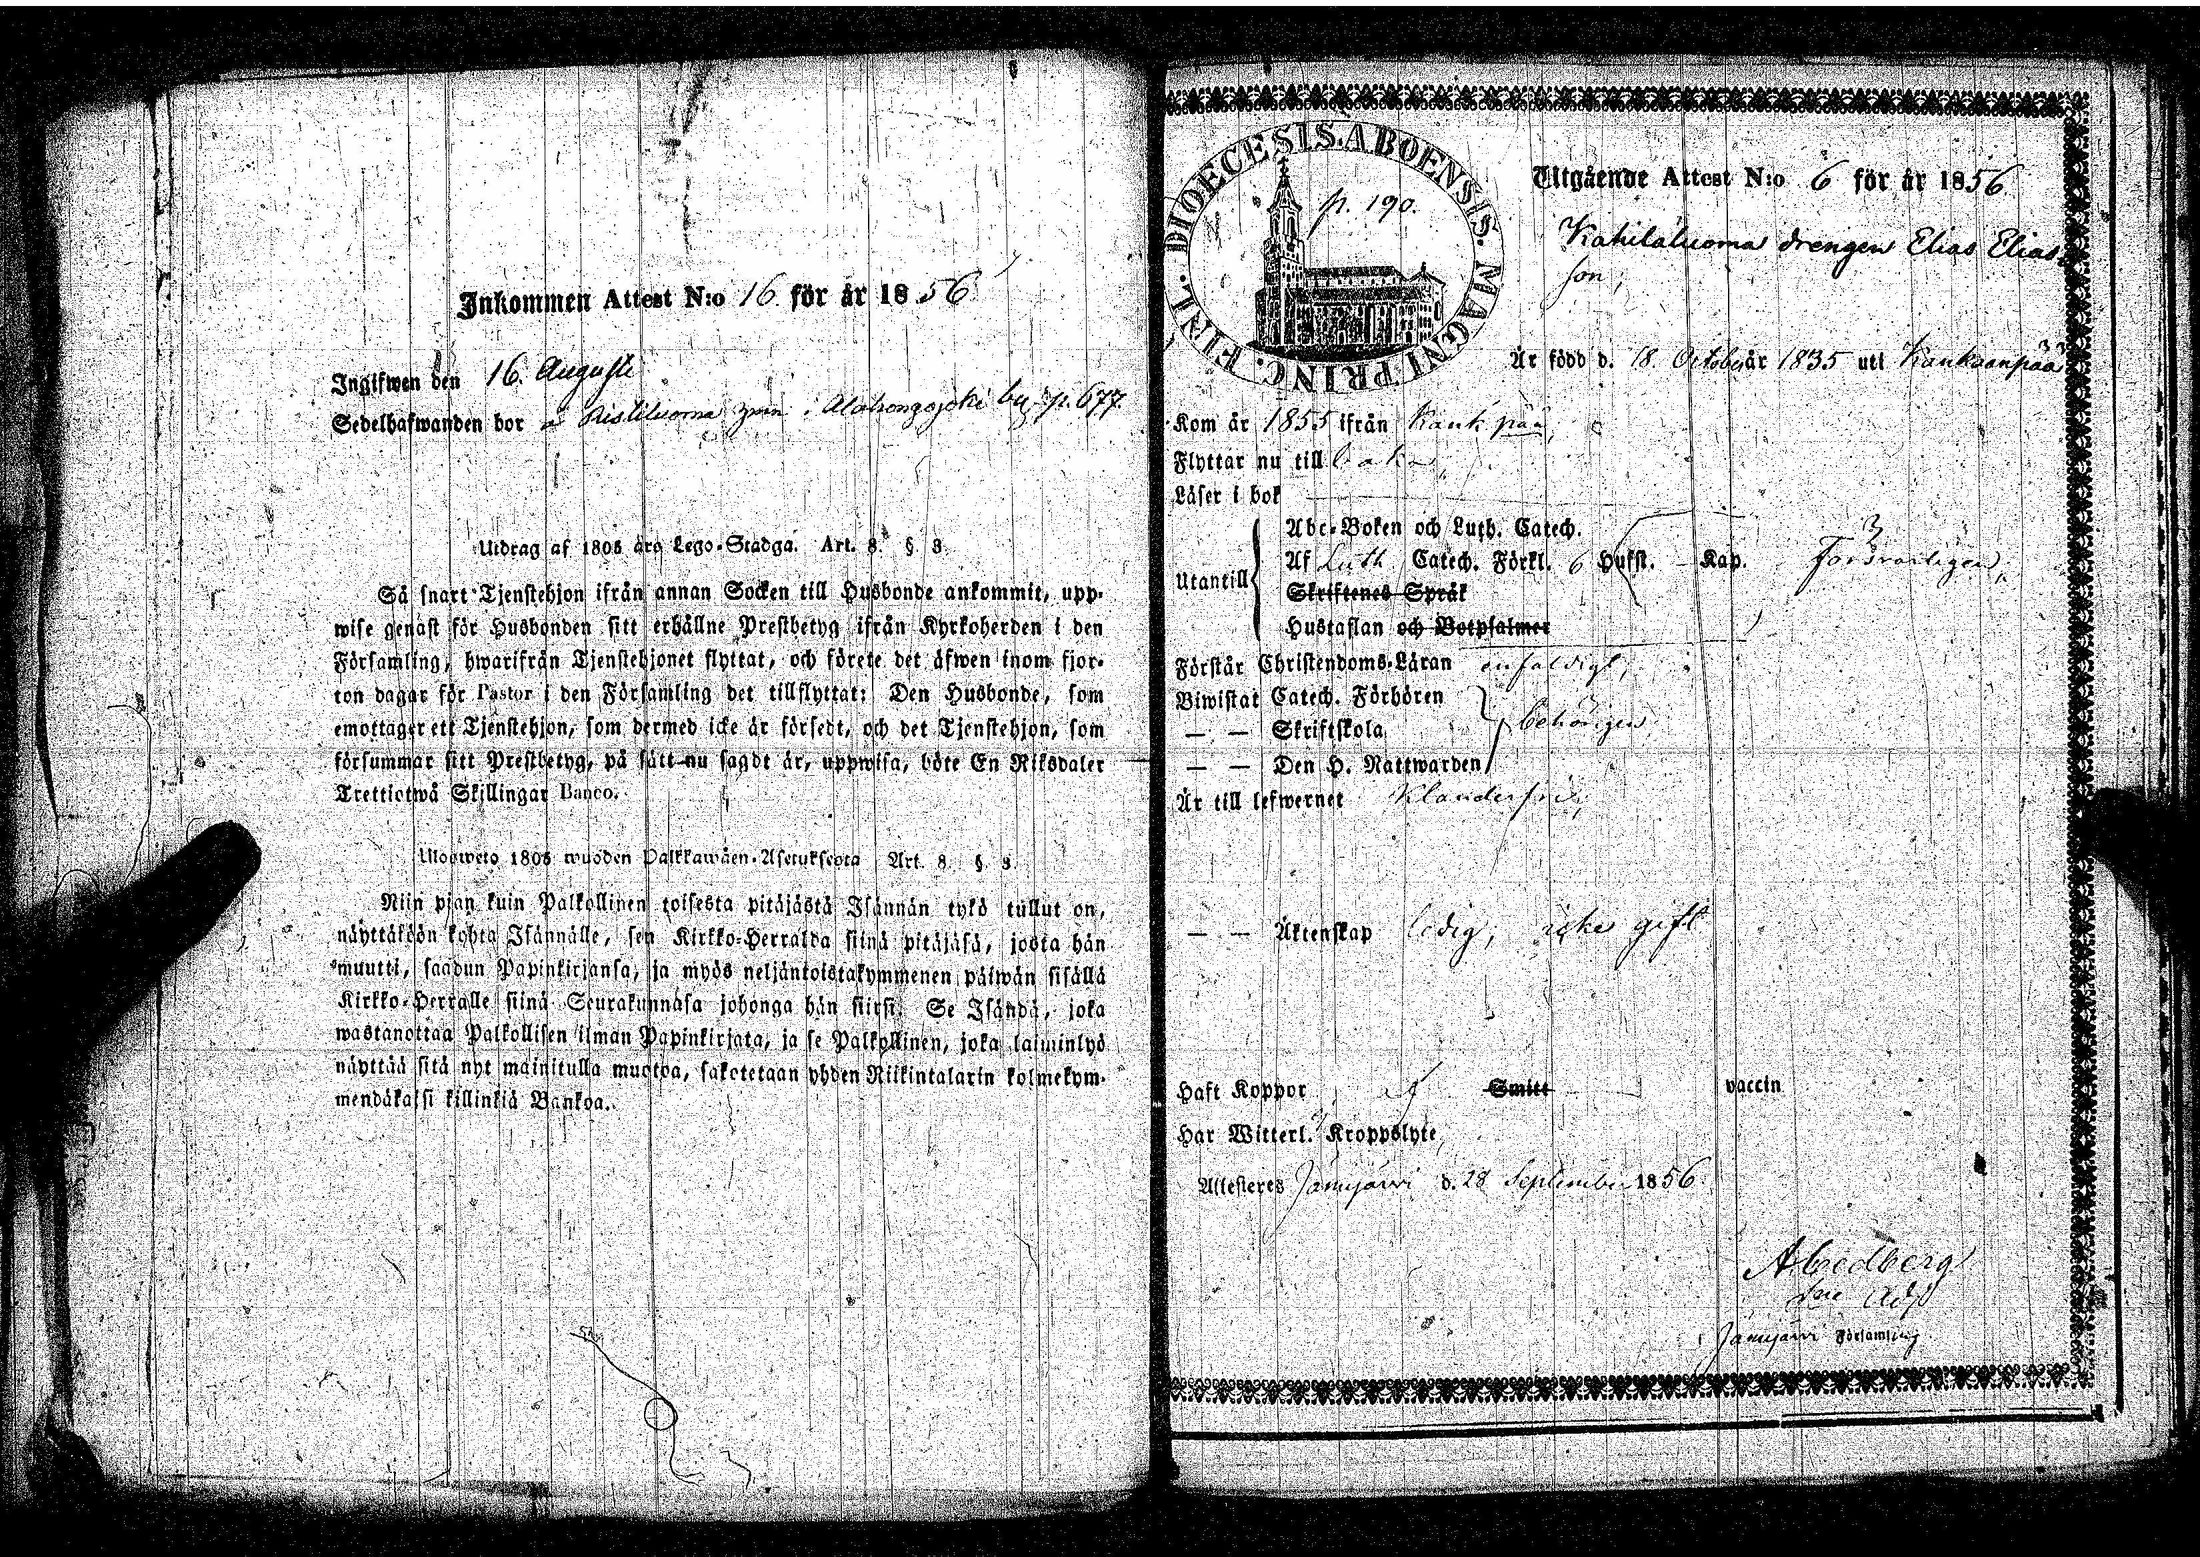 Inkommen Attest N:o 16 för år 1856
Ingifwen den 16. Augusti
Sedelhafwanden bor å Ristiluoma i Alahongojoki by p. 677.
Utdrag af 1805 års Lego-Stadga. Art. 8. § 3.
Så snart Tjenstehjon ifrån annan Socken till Husbonde ankommit, upp-
wise genast för Husbonden sitt erhållne Prestbetyg ifrån Kyrkoherden i den
Församling, hwarifrån Tjenstehjonet flyttat, och förete det äfwen inom fjor-
ton dagar för Pastor i den Församling det tillflyttat: Den Husbonde, som
emottager ett Tjenstehjon, som dermed icke är försedt, och det Tjenstehjon, som
försummar sitt Prestbetyg, på sätt nu sagdt är, uppwisa, böte En Riksdaler
Trettiotwå Skillingar Banco.
Ulosweto 1805 wuoden Palkkawäen-Asetuksesta Art. 8 § 3.
Niin pjan kuin Palkollinen toisesta pitäjästä Isännän tykö tullut on,
näyttäköön kohta Isännälle, sen Kirkko-Herralda siinä pitäjäsä, josta hän
muutti, saadun Papinkirjansa, ja myös neljäntoistakymmenen päiwän sisällä
Kirkko-Herralle siinä Seurakunnasa johonga hän siirsi. Se Isändä, joka
wastanottaa Palkollisen ilman Papinkirjata, ja se Palkollinen, joka laiminlyö
näyttää sitä nyt mainitulla muotoa, sakotetaan yhden Riikintalarin kolmekym-
mendäkaksi killinkiä Bankoa.
DIOECESIS ABOENSIS. MAGNI PRINC. FINL.
p. 190.
Utgående Attest N:o 6 för år 1856
Kahilaluoma drengen Elias Elias-
son,
Är född d. 18. October år 1835 uti Kankaanpää
Kom år 1855 ifrån Kank'pää,
Flyttar nu till baka,
Läser i bok
Utantill
Abc-Boken och Luth. Catech.
Af Luth Catech. Förkl. 6 Hufst. – Kap. Försvarligen,
Skriftenes Språk
Hustaflan och Botpsalmer
Förstår Christendoms-Läran enfaldigt,
Biwistat Catech. Förhören
— — Skriftskola behörigen
— — Den H. Nattwarden
Är till lefwernet Klanderfri,
— — Äktenskap ledig, icke gift
Haft Koppor Smitt vaccin
Har Witterl. Kroppslyte
Attesteres Jämijärvi d. 28 September 1856
Jämijärvi Församling